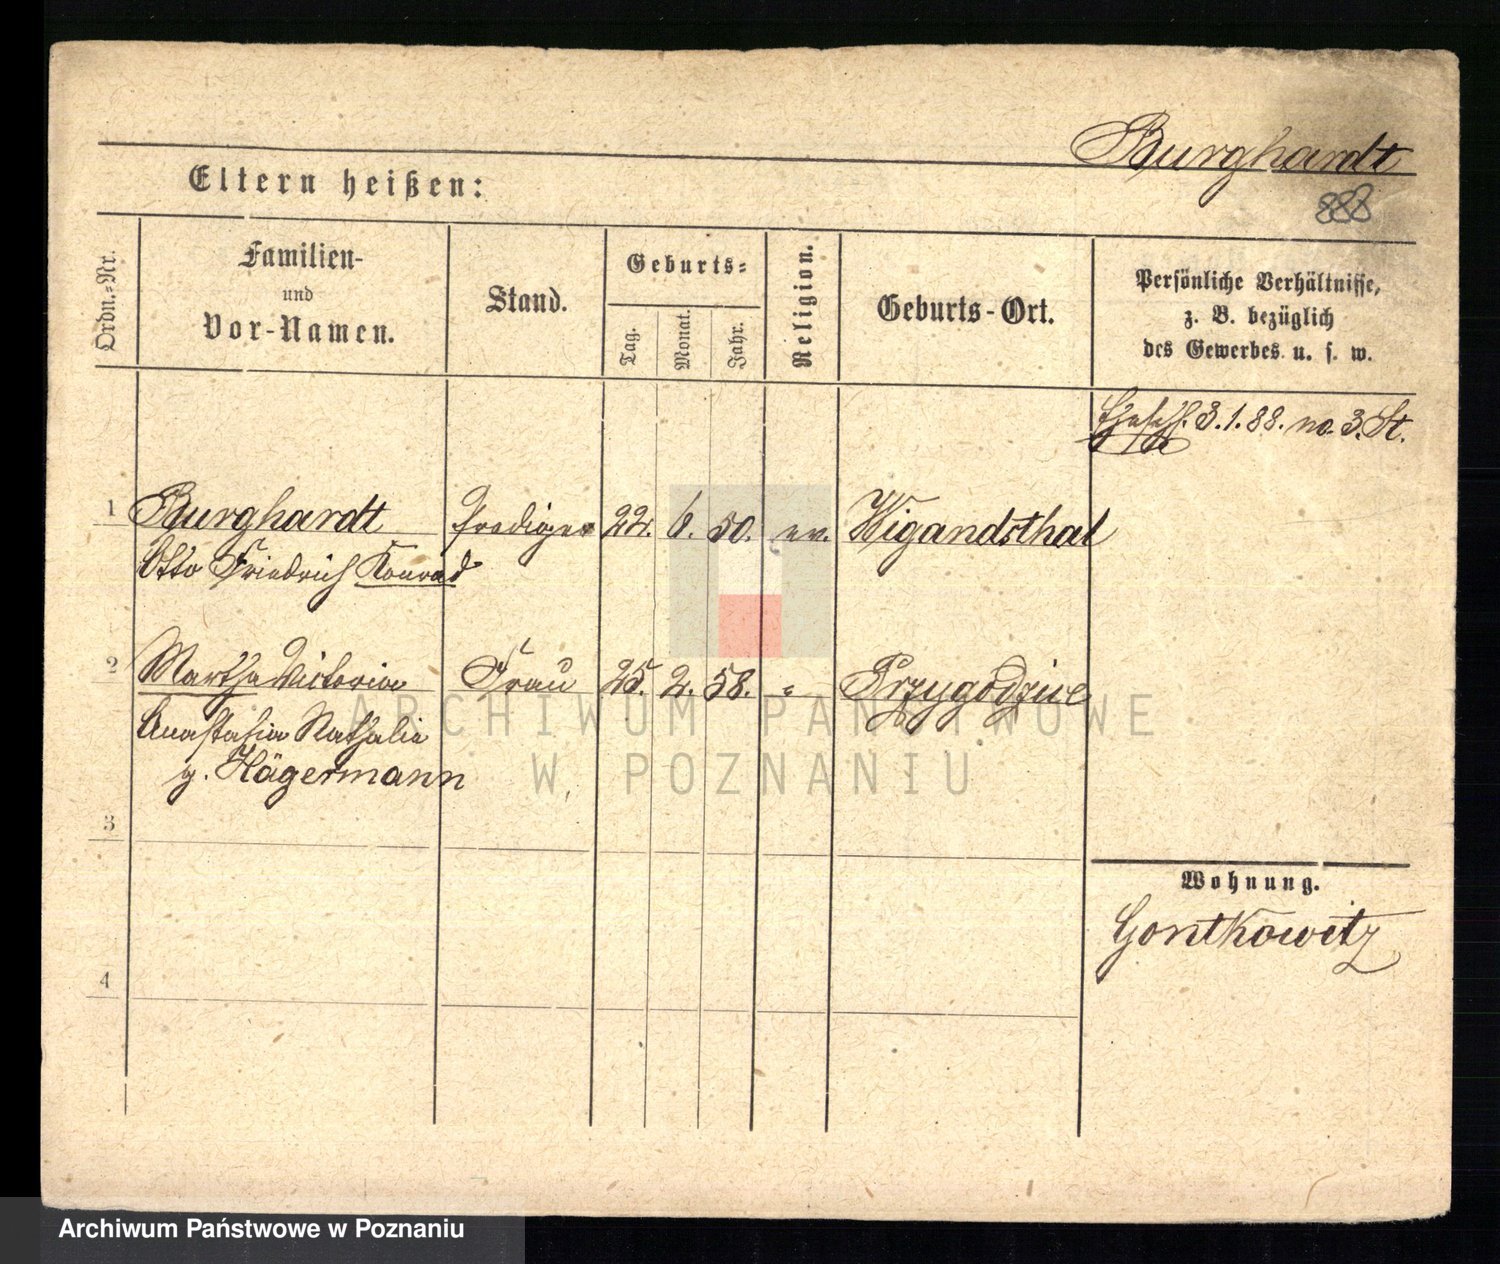 Burghardt
Eltern heißen:
888
Ordn.-Nr.
Familien-
und
Vor-Namen.
Stand.
Geburts-
Tag.
Monat.
Jahr.
Religion.
Geburts-Ort.
Persönliche Verhältnisse,
z. B. bezüglich
des Gewerbes u. s. w.
3.1.88. no. 3. St.
1 Burghardt Prediger 22. 6. 50. ev. Wigandsthal
Otto Friedrich Konrad
2 Martha Victoria Frau 25. 2. 58. " Przygodzice
Anastasia Nathalie
g. Hägermann
3
Wohnung.
Gontkowitz
4
ARCHIWUM PAŃSTWOWE
W POZNANIU
Archiwum Państwowe w Poznaniu